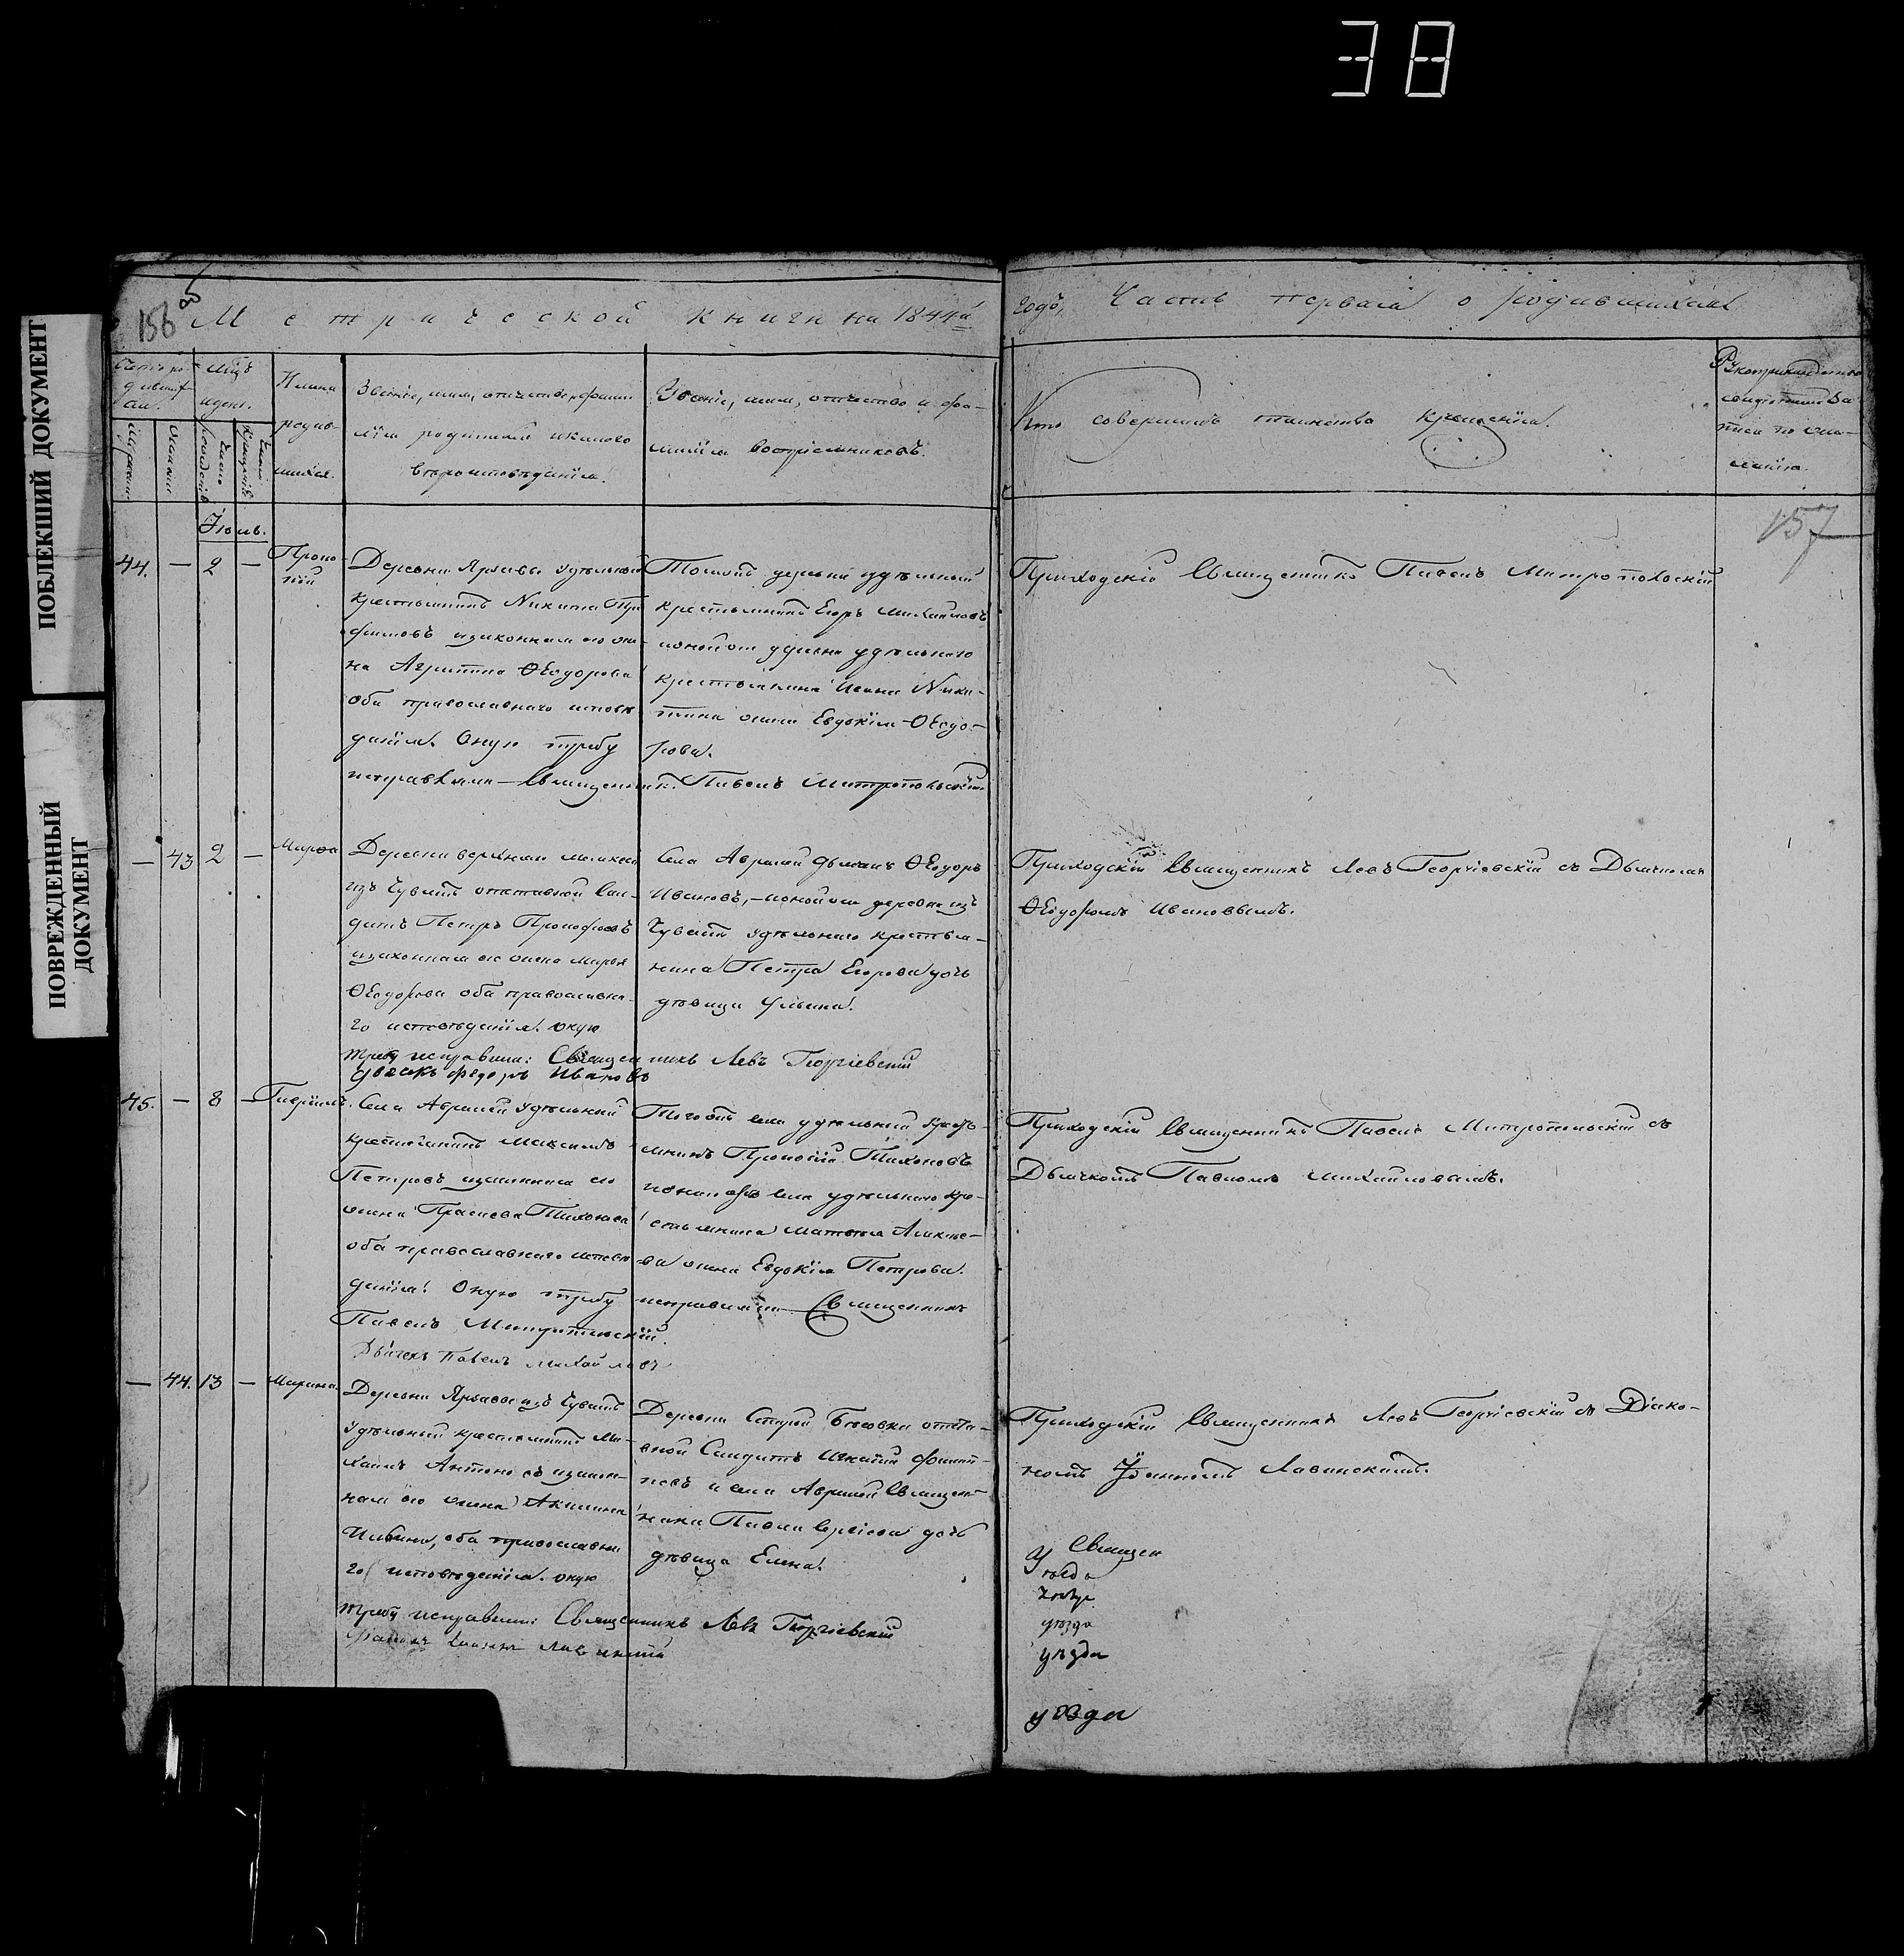 38
ПОБЛЕКШИЙ ДОКУМЕНТ
ПОВРЕЖДЕННЫЙ
ДОКУМЕНТ
156
Метрической книги на 1844й
годъ, Часть первая о родившихся
Имена
родив-
шихся.
Званіе, имя, отчество и фами-
лія родителей и какого
вѣроисповѣданія.
Званіе, имя, отчество и фа-
милія воспріемниковъ.
Кто совершалъ таинство крещенія.
157
Іюль.
44. — 2 — Прокопій
Деревни удѣльный
крестьянинъ Никита Три
фимовъ и законная его же-
на Агрипина Ѳеодорова
оба православнаго исповѣ
данія. Оную требу
исправляли — Священникъ Павелъ Митропольскій
Тойже деревни удѣльный
крестьянинъ Егоръ Михайловъ
и оной же деревни удѣльнаго
крестьянина Ивана Ники-
тина жена Евдокія Ѳеодо-
рова.
Приходскій Священникъ Павелъ Митропольскій
— 43 2 — Марѳа
Деревни верхней
изъ Чувашъ отставной Сол-
датъ Петръ Прокофьевъ
и законная его жена Марья
Ѳеодорова оба православна-
го исповѣданія. оную
требу исправляли: Священникъ Левъ Георгіевскій
дьячекъ Ѳедоръ Ивановъ
Села Авралей дьячекъ Ѳеодоръ
Ивановъ, — и оной же деревни изъ
Чувашъ удѣльнаго крестья-
нина Петра Егорова дочь
дѣвица Ульяна.
Приходскій Священникъ Левъ Георгіевскій съ Дьячкомъ
Ѳеодоромъ Ивановымъ.
45. — 8 — Гавріилъ.
Села Авралей удѣльный
крестьянинъ Максимъ
Петровъ и законная его
жена Прасковья Тихонова
оба православнаго исповѣ
данія. Оную требу исправляли — Священникъ
Павелъ Митропольскій.
Дьячекъ Павелъ Михайловъ
Тогоже села удѣльный кресть-
янинъ Прокопій Тихоновъ
и оного же села удѣльнаго кре-
стьянина Матвея Алексѣе-
ва жена Евдокія Петрова.
Приходскій Священникъ Павелъ Митропольскій съ
Дьячкомъ Павломъ Михайловымъ.
— 44. 13 — Марина.
Деревни изъ Чувашъ
удѣльный крестьянинъ Ми-
хаилъ Антоновъ и закон-
ная его жена Акилина
Ильина, оба православна
го исповѣданія. оную
требу исправляли: Священникъ Левъ Георгіевскій
Деревни Старой Бѣсовки отста-
вной Солдатъ Игнатій
и села Авралей Священ-
ника Павла дочь
дѣвица Елена.
Приходскій Священникъ Левъ Георгіевскій съ Діако-
номъ Іоанномъ Лавинскимъ.
Священ
уѣзда
уѣзда
уѣзда